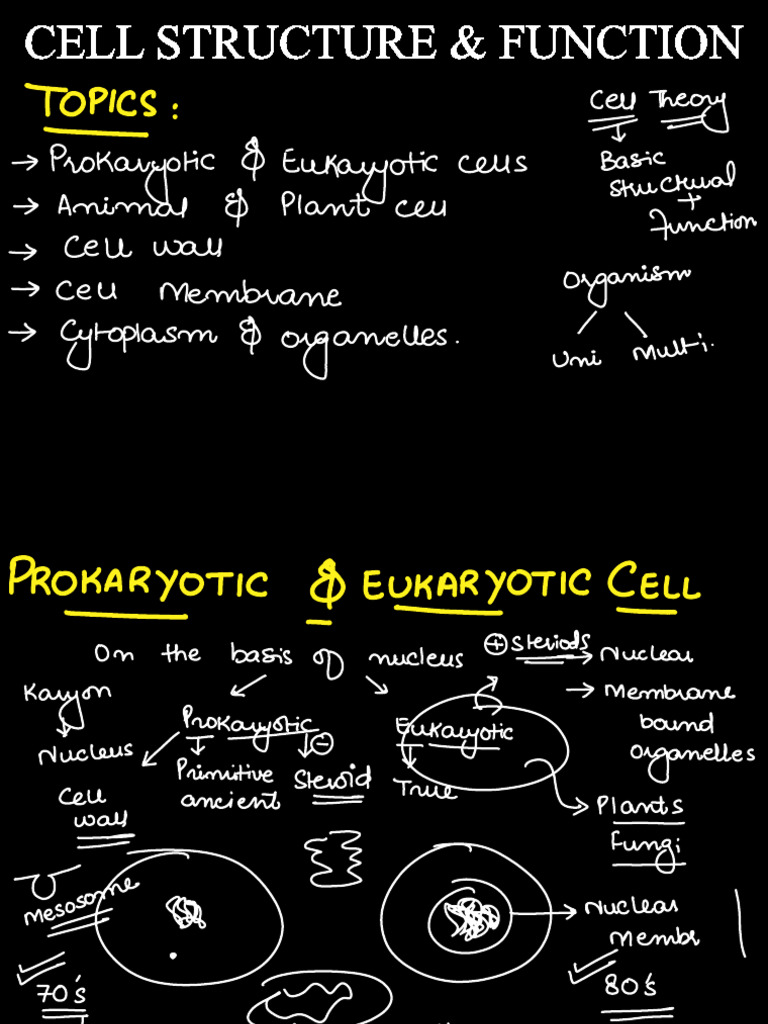 CELL STRUCTURE & FUNCTION
TOPICS:
→ Prokaryotic & Eukaryotic cells
→ Animal & Plant cell
→ Cell wall
→ Cell Membrane
→ Cytoplasm & organelles.
Cell Theory
Basic
Structural
+
Function
Organism
Uni Multi.
PROKARYOTIC & EUKARYOTIC CELL
On the basis of nucleus
⊕ Steriods → Nuclear
→ Membrane
bound
organelles
Karyon
Nucleus
Prokaryotic
Primitive
ancient
⊖
Steroid
Eukaryotic
True
Cell
wall
Plants
Fungi
Mesosome
Nuclear
Membr
70's
80's